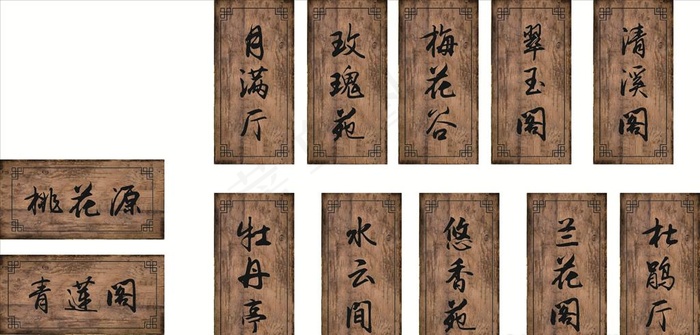 月满厅
玫瑰苑
梅花谷
翠玉阁
清溪阁
桃花源
青莲阁
牡丹亭
水云间
悠香苑
兰花阁
杜鹃厅